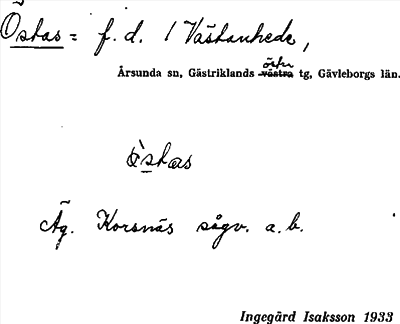 Östas = f. d. / Västanhede,
Årsunda sn, Gästriklands västra östra tg, Gävleborgs län.
östas
Äg. Korsnäs sågv. a. b.
Ingegärd Isaksson 1933